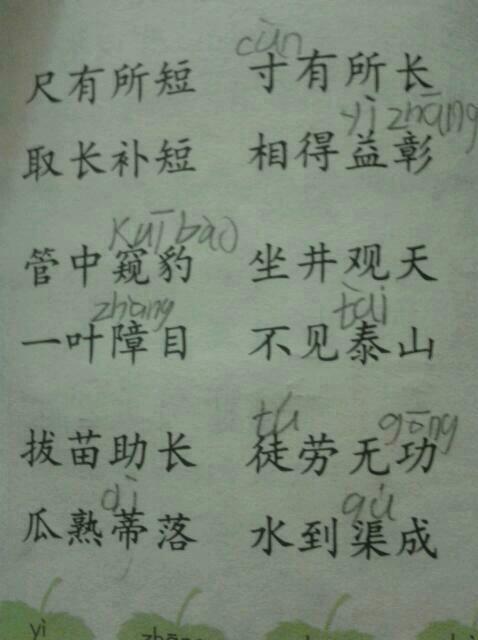 cùn
尺有所短 寸有所长
yì zhāng
取长补短 相得益彰
kuī bào
管中窥豹 坐井观天
zhàng tài
一叶障目 不见泰山
tú gōng
拔苗助长 徒劳无功
dì qú
瓜熟蒂落 水到渠成
yì zhāng